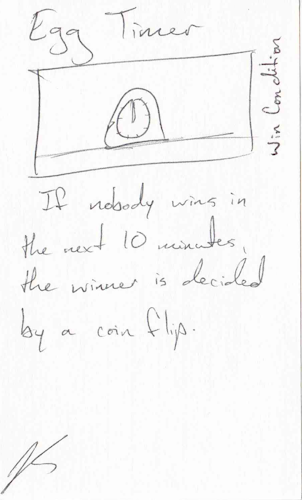 Egg Timer
Win Condition
If nobody wins in
the next 10 minutes,
the winner is decided
by a coin flip.